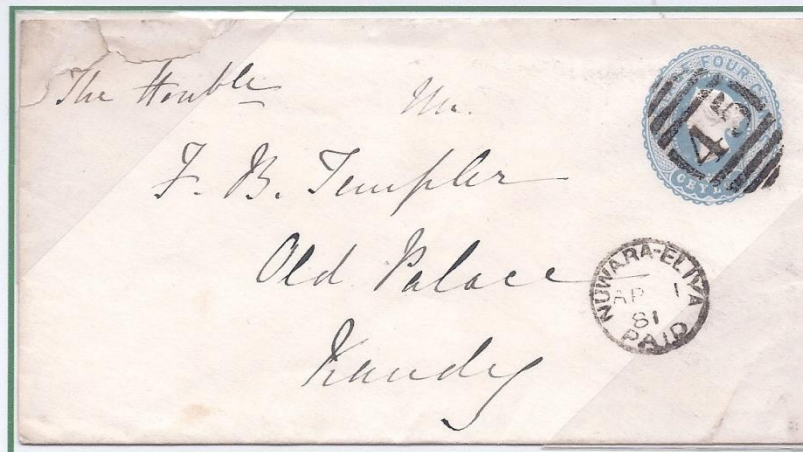 The Honble Mr.
F. B. Templer
Old Palace
Kandy
FOUR C
CEYL
NUWARA-ELIYA
AP 1
81
PAID